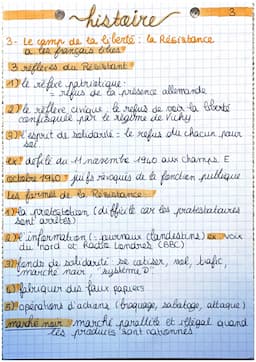 histoire
3
3- Le camp de la liberté : la Résistance
a les français libres
3 réflexes du Résistant
1) le réflexe patriotique :
= refus de la présence allemande
2) le réflexe civique : le refus de voir la liberté
confisquée par le régime de Vichy
3) l'esprit de solidarité = le refus du chacun pour
soi
ex : défilé du 11 novembre 1940 aux champs E
octobre 1940 : juifs révoqués de la fonction publique
Les formes de la Résistance
1) la protestation (difficile car les protestataires
sont arrêtés)
2) l'information : journaux clandestins) ex voix
du Nord et Radio Londres (BBC)
3) fonds de solidarité se cotiser, vol, trafic,
marché noir, "système D"
4) fabriquer des faux papiers
5) opérations d'actions (braquage, sabotage, attaque)
marché noir : marché parallèle et illégal quand
les produits sont rationnés